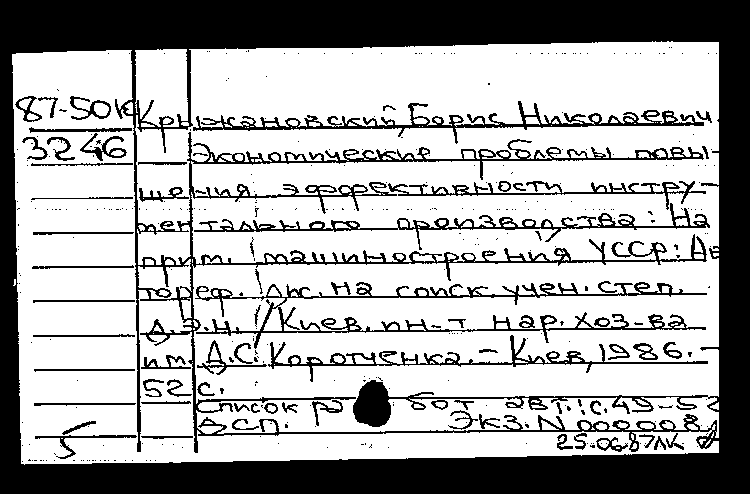 87-50К Крыжановский, Борис Николаевич.
3246 Экономические проблемы повы-
шения эффективности инстру-
ментального производства: На
прим. машиностроения УССР: Ав
тореф. дис. на соиск. учен. степ.
д.э.н. / Киев. ин-т нар. хоз-ва
им. Д.С. Коротченка. - Киев, 1986. -
52 с.
Список работ авт.: с. 49-52
ДСП. Экз. N 000008
5 25.06.87 ЛК